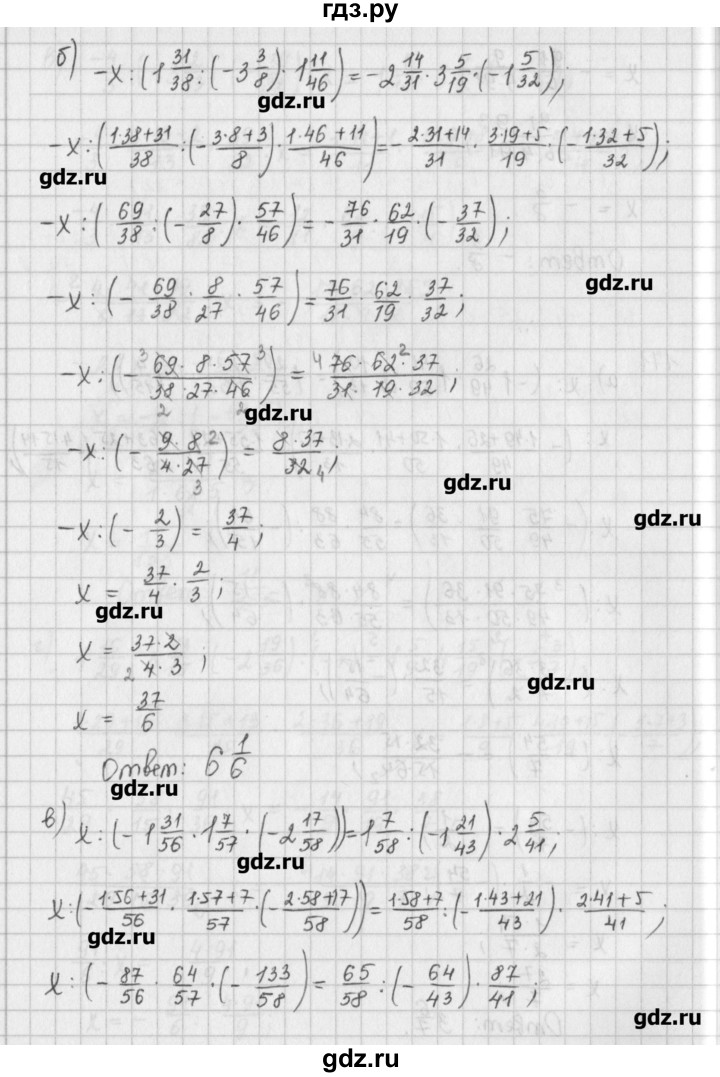 гдз.ру
б) -x : (1 31/38 : (-3 3/8) · 1 11/46) = -2 14/31 · 3 5/19 · (-1 5/32);
gdz.ru
-x : ((1·38+31)/38 : (-(3·8+3)/8) · (1·46+11)/46) = -(2·31+14)/31 · (3·19+5)/19 · (-(1·32+5)/32);
gdz.ru
-x : (69/38 : (-27/8) · 57/46) = -76/31 · 62/19 · (-37/32);
gdz.ru
-x : (-69/38 · 8/27 · 57/46) = 76/31 · 62/19 · 37/32;
-x : (-(³69 · 8 · 57³)/(38₂ · 27 · 46₂)) = (⁴76 · 62² · 37)/(31 · 19 · 32);
gdz.ru
-x : (-(9 · 8²)/(4 · 27₃)) = (8 · 37)/32₄;
gdz.ru
gdz.ru
-x : (-2/3) = 37/4;
x = 37/4 · 2/3;
gdz.ru
x = (37 · 2)/(₂4 · 3);
gdz.ru
x = 37/6
Ответ: 6 1/6
gdz.ru
в) x : (-1 31/56 · 1 7/57 · (-2 17/58)) = 1 7/58 : (-1 21/43) · 2 5/41;
gdz.ru
x : (-(1·56+31)/56 · (1·57+7)/57 · (-(2·58+17)/58)) = (1·58+7)/58 : (-(1·43+21)/43) · (2·41+5)/41;
gdz.ru
x : (-87/56 · 64/57 · (-133/58) = 65/58 : (-64/43) · 87/41;
gdz.ru
gdz.ru